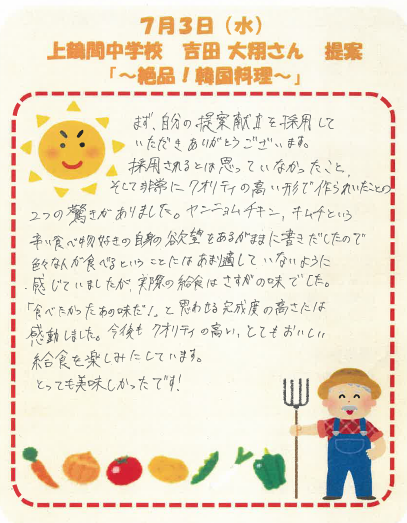 7月3日（水）
上鶴間中学校　吉田 大翔さん　提案
「～絶品！韓国料理～」
まず、自分の提案献立を採用して
いただきありがとうございます。
採用されるとは思っていなかったこと、
そして非常にクオリティの高い形で作られていたことの
2つの驚きがありました。ヤンニョムチキン、キムチという
辛い食べ物好きの自身の欲望をあるがままに書きだしたので
色々な人が食べるということにはあまり適していないように
感じていましたが、実際の給食はさすがの味でした。
「食べたかったあの味だ！」と思わせる完成度の高さには
感動しました。今後もクオリティの高い、とてもおいしい
給食を楽しみにしています。
とっても美味しかったです！